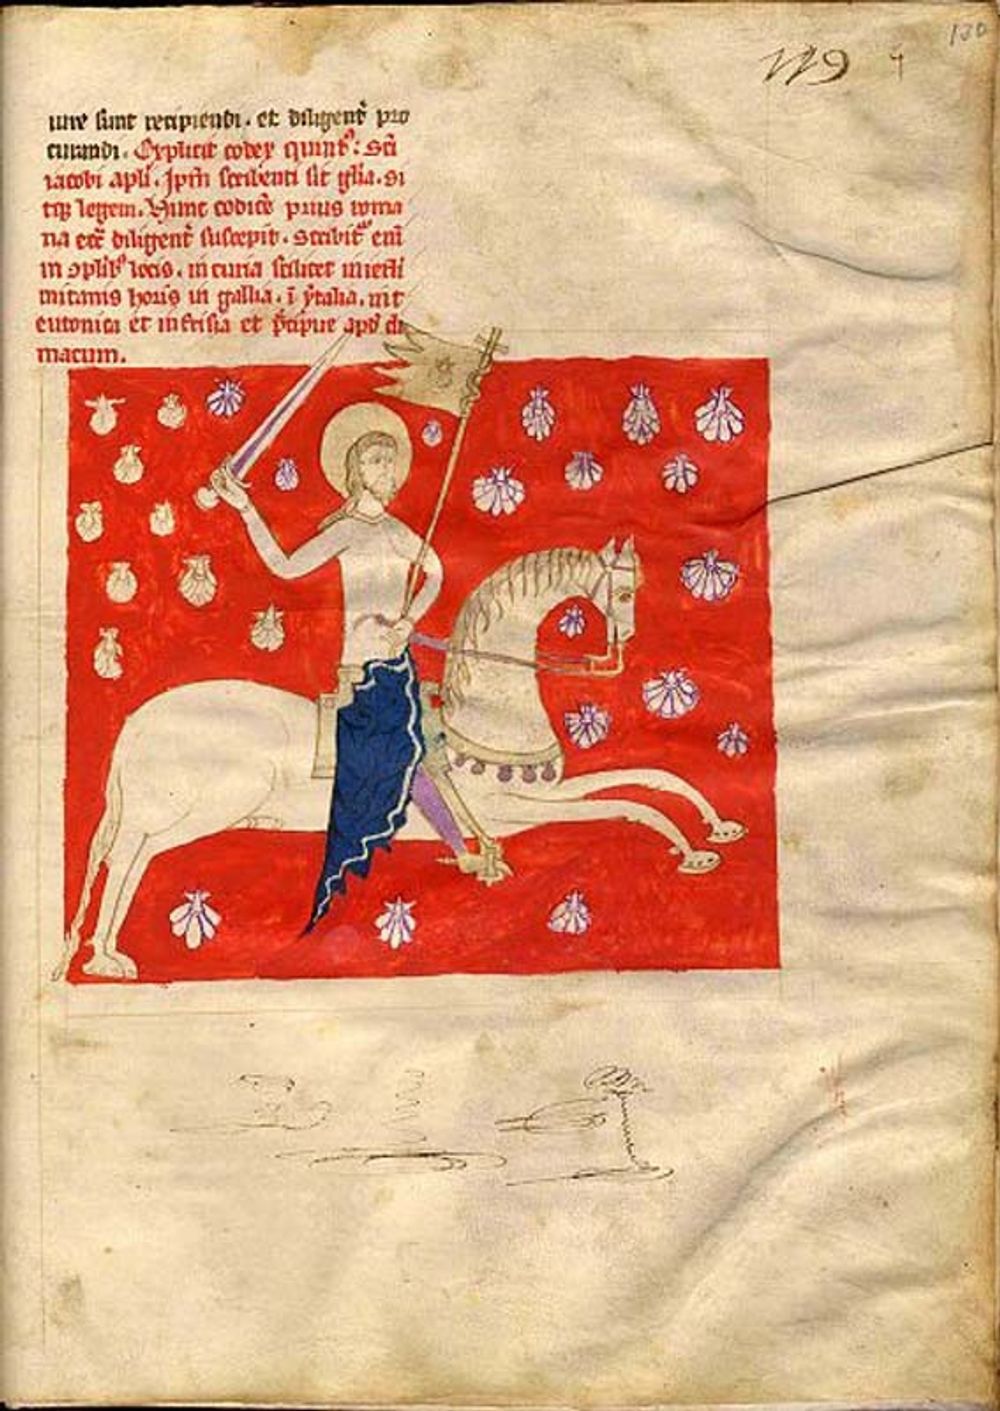 130
119
iure sunt recipiendi. et diligent̃ pro
curandi. Explicit codex quint⁹: Sc̃i
iacobi apl̃i. Ip̃m scribenti sit gl̃a. si
tq; legenti. Hunc codicẽ prius roma
na ecc̃ diligent̃ suscepit. Scribit᷑ eni᷑
in ↄplib⁹ locis. in curia scilicet in ierl̃i
mitanis horis in gallia. ĩ ytalia. in t
eutonica et in frisia et p̃cipue apd̃ clu
niacum.